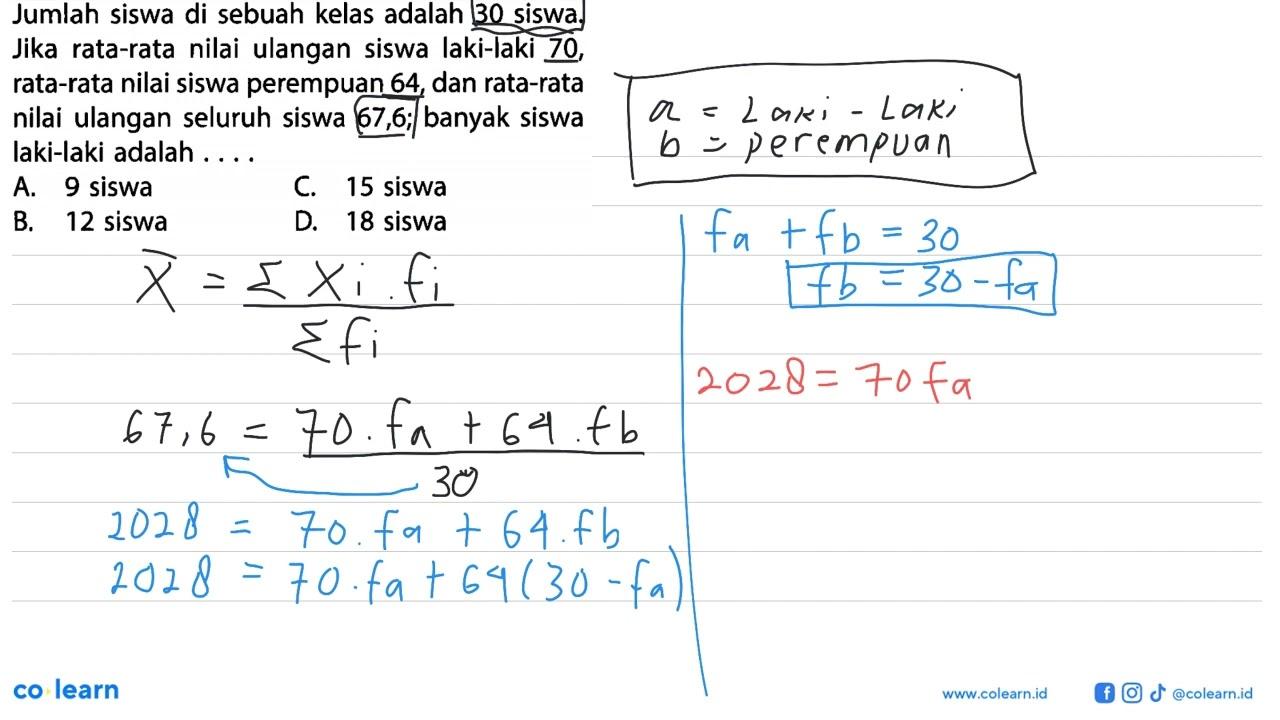 Jumlah siswa di sebuah kelas adalah 30 siswa.
Jika rata-rata nilai ulangan siswa laki-laki 70,
rata-rata nilai siswa perempuan 64, dan rata-rata
nilai ulangan seluruh siswa 67,6; banyak siswa
laki-laki adalah . . . .
A. 9 siswa C. 15 siswa
B. 12 siswa D. 18 siswa
a = Laki - Laki
b = perempuan
x̄ = Σ xi . fi
Σ fi
67,6 = 70 . fa + 64 . fb
30
2028 = 70 . fa + 64 . fb
2028 = 70 . fa + 64 ( 30 - fa )
fa + fb = 30
fb = 30 - fa
2028 = 70 fa
co learn
www.colearn.id
@colearn.id